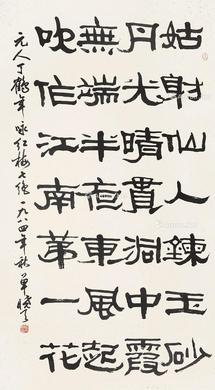 姑射仙人鍊玉砂
丹光晴貫洞中霞
無端半夜東風起
吹作江南第一花
元人丁鶴年咏红梅七绝一九八四年秋單曉天